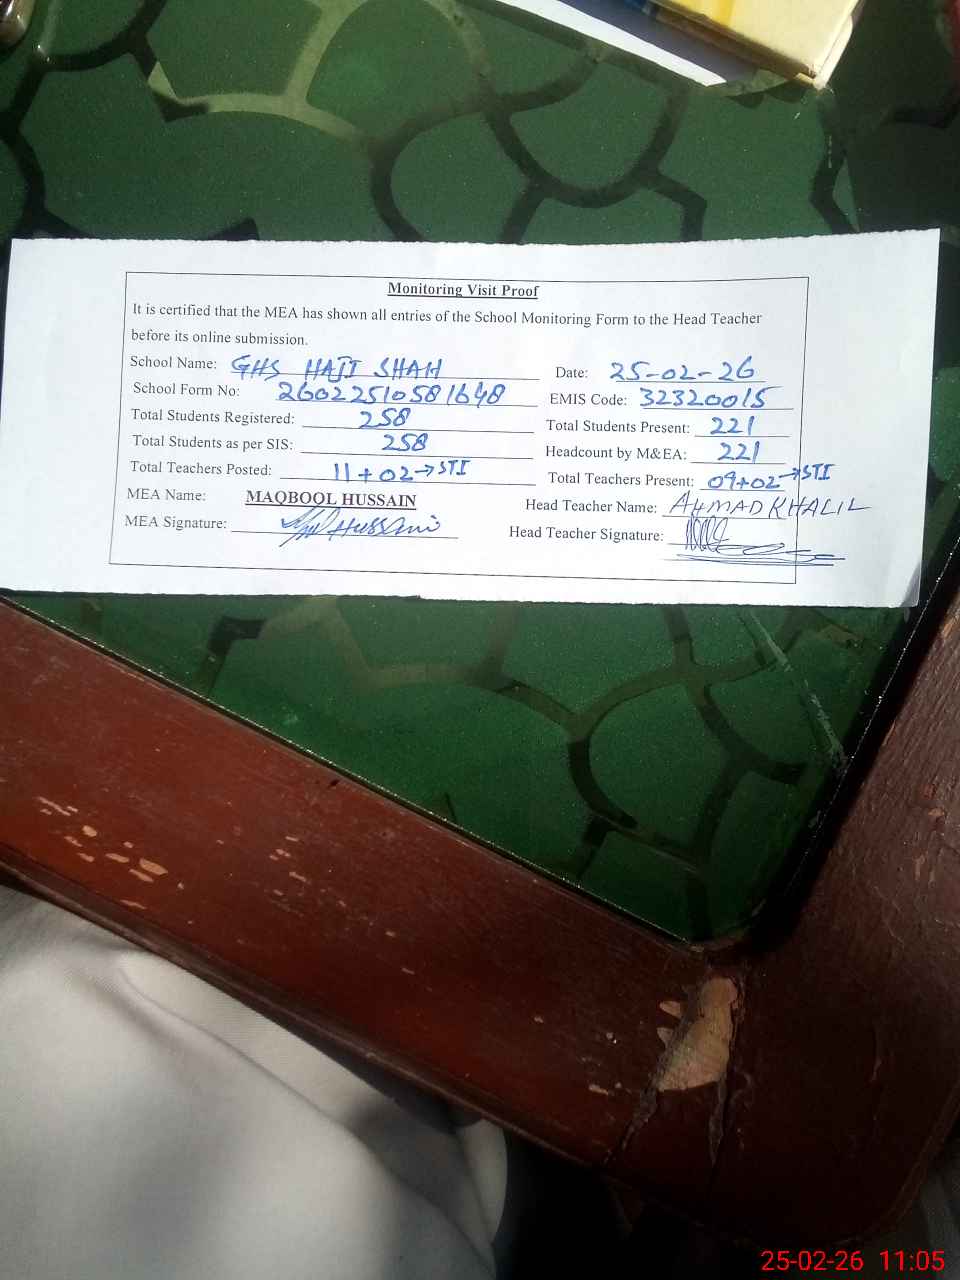 Monitoring Visit Proof
It is certified that the MEA has shown all entries of the School Monitoring Form to the Head Teacher
before its online submission.
School Name: GHS HAJI SHAH Date: 25-02-26
School Form No: 26022510581648 EMIS Code: 32320015
Total Students Registered: 258 Total Students Present: 221
Total Students as per SIS: 258 Headcount by M&EA: 221
Total Teachers Posted: 11+02→STI Total Teachers Present: 09+02→STI
MEA Name: MAQBOOL HUSSAIN Head Teacher Name: AHMAD KHALIL
MEA Signature: Hussain Head Teacher Signature:
25-02-26 11:05